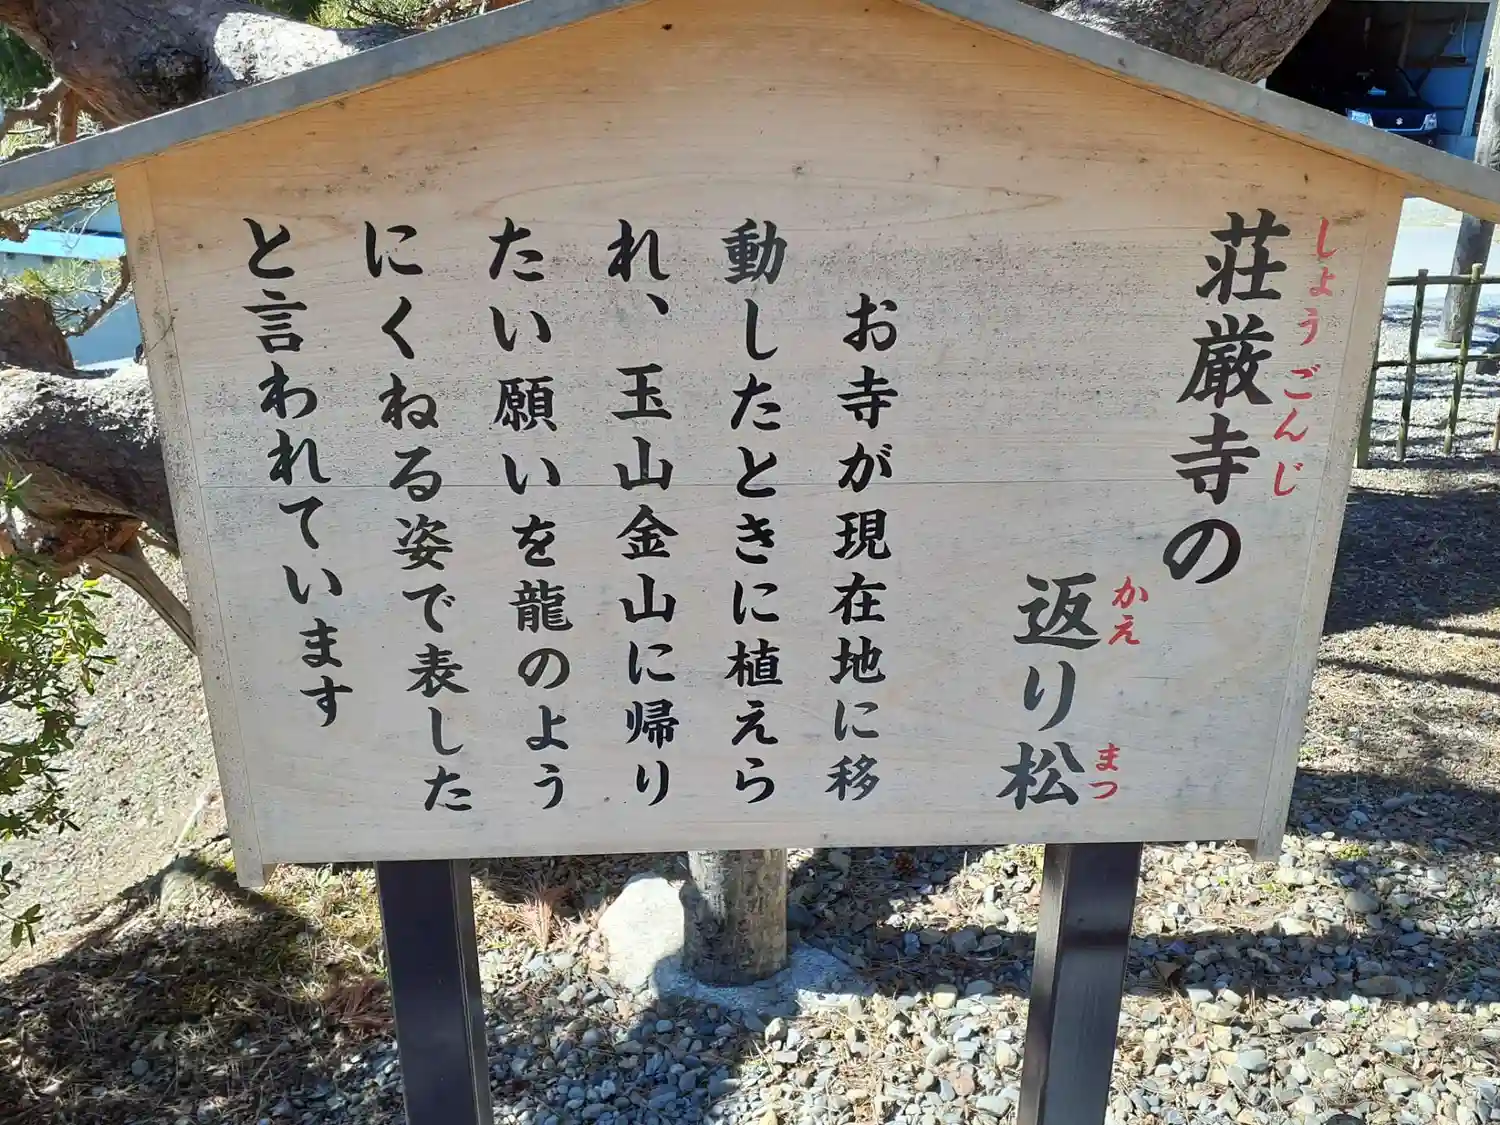 しょうごんじ
荘厳寺の
かえ まつ
返り松
お寺が現在地に移
動したときに植えら
れ、玉山金山に帰り
たい願いを龍のよう
にくねる姿で表した
と言われています